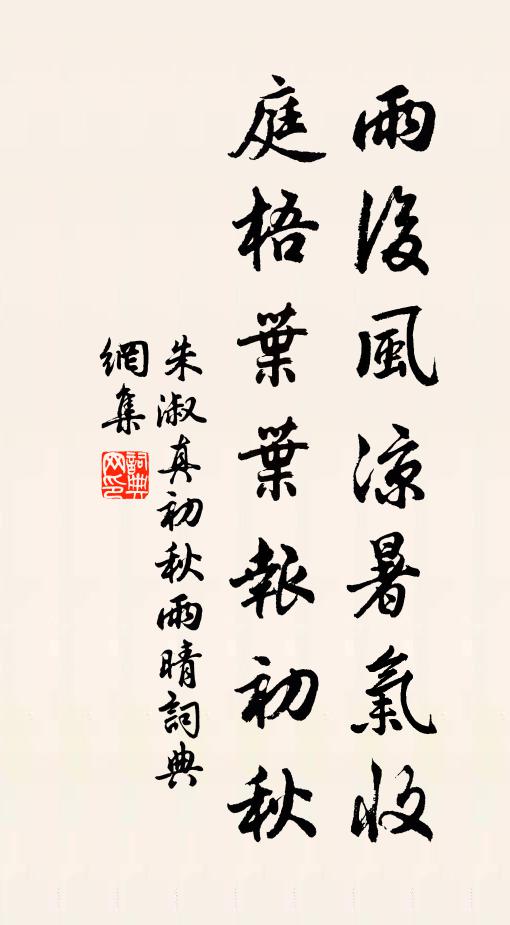 雨後風涼暑氣收
庭梧葉葉報初秋
朱淑真初秋雨晴詞典
網集
詞典
网印